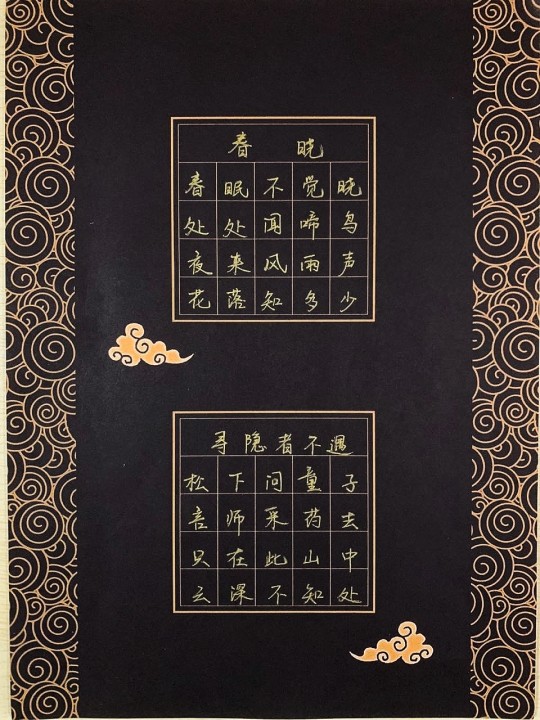 春 晓
春眠不觉晓
处处闻啼鸟
夜来风雨声
花落知多少
寻隐者不遇
松下问童子
言师采药去
只在此山中
云深不知处